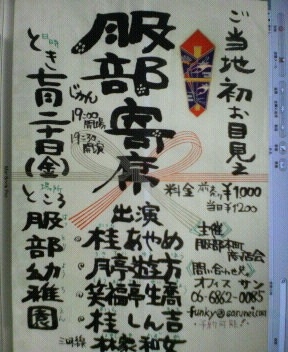 ご当地初お目見え
服部寄席
とき 七月二十日(金)
じかん
19:00 開場
19:30 開演
ところ 服部幼稚園
出演
桂あやめ
月亭遊方
笑福亭生喬
桂しん吉
三味線 林家和女
料金 前売り¥1000
当日¥1200
主催
服部本町商店会
問い合わせ
オフィス サン
06-6862-0085